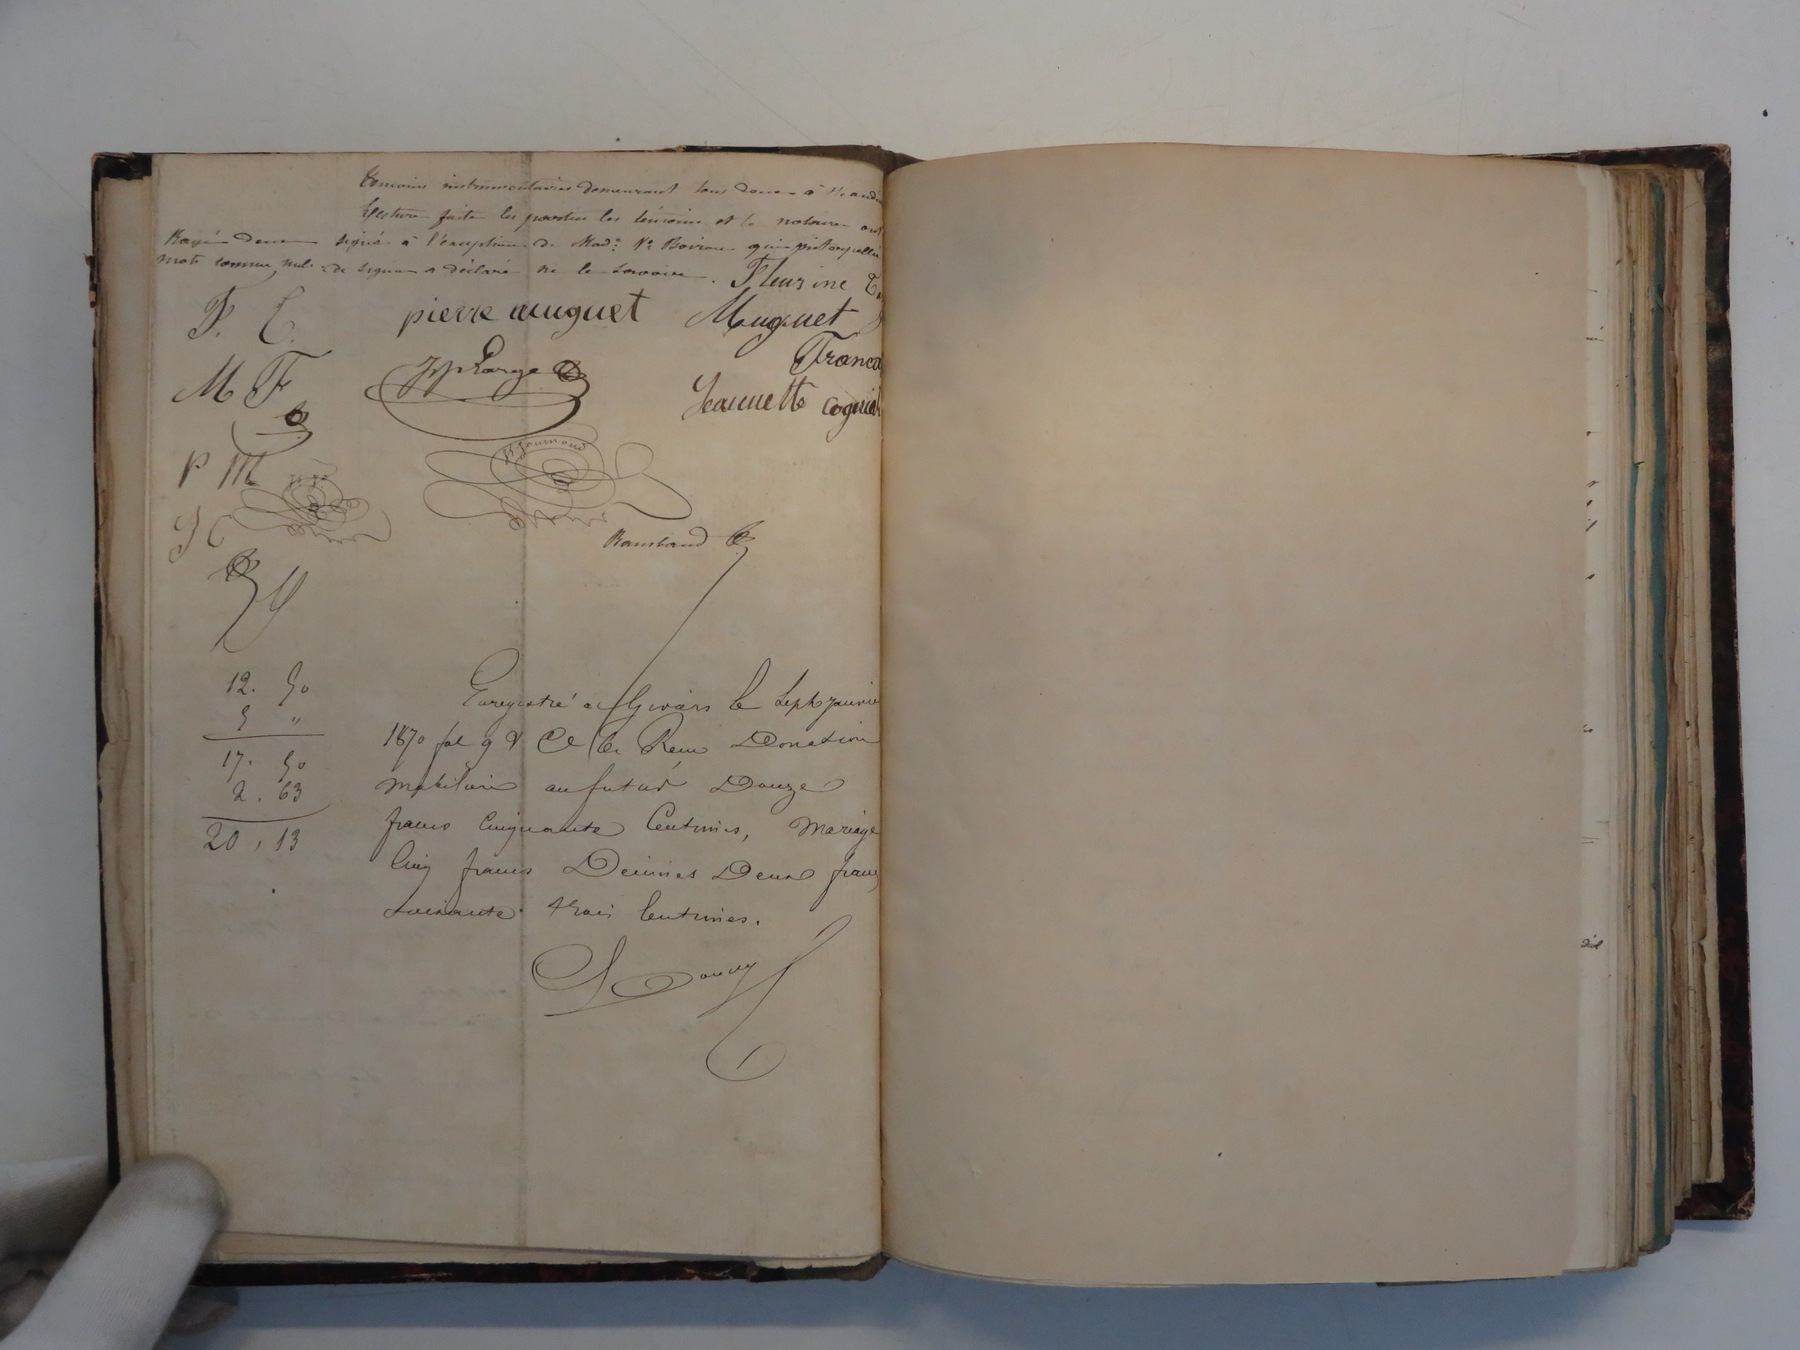 témoins instrumentaires demeurant tous deux à
Lecture faite les parties les témoins et le notaire ont
Rayé deux signé à l'exception de Mad.e Ve qui interpellée
mots comme nuls. de signer a déclaré ne le savoir. Fleurine
F. C. pierre muguet Muguet
M F JP Large Franco
Jeannette cognet
P M Journoud
J C
Rambaud
12. 50 Enregistré à Givors le Sept Janvier
5 " 1870 fol 9 V Ce Reçu Donation
17. 50 mobilière au futur Douze
2. 63 francs Cinquante Centimes, Mariage
20, 13 Cinq francs Décimes Deux francs
soixante trois Centimes.